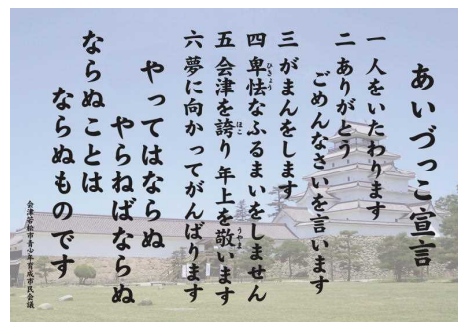 あいづっこ宣言
一 人をいたわります
二 ありがとう
ごめんなさいを言います
三 がまんをします
四 卑怯なふるまいをしません
五 会津を誇り年上を敬います
六 夢に向かってがんばります
やってはならぬ
やらねばならぬ
ならぬことは
ならぬものです
会津若松市青少年育成市民会議